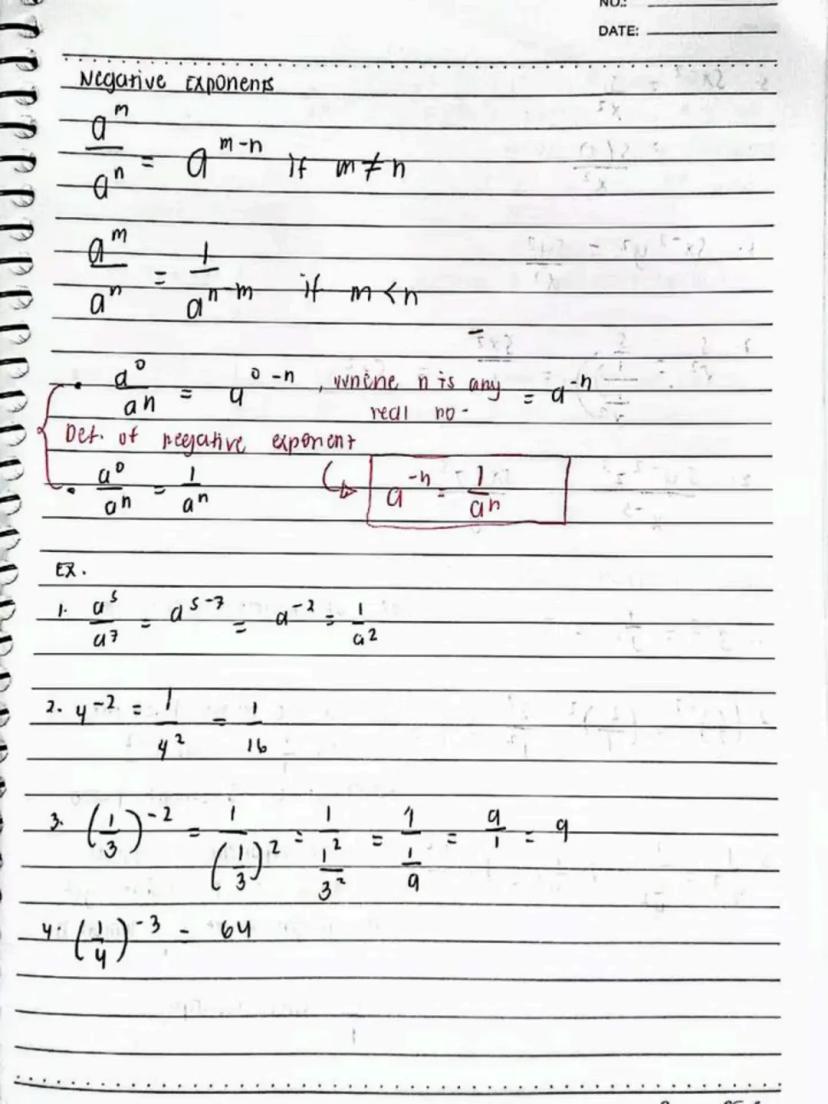 NO.:
DATE:
Negative Exponents
a^m / a^n = a^(m-n) if m ≠ n
a^m / a^n = 1 / a^(n-m) if m < n
• a^0 / an = a^(0-n), where n is any real no. = a^(-n)
Def. of negative exponent
• a^0 / an = 1 / a^n → a^(-n) = 1 / a^n
EX.
1. a^5 / a^7 = a^(5-7) = a^(-2) = 1 / a^2
2. 4^(-2) = 1 / 4^2 = 1 / 16
3. (1/3)^(-2) = 1 / (1/3)^2 = 1 / (1^2 / 3^2) = 1 / (1/9) = 9/1 = 9
4. (1/4)^(-3) = 64